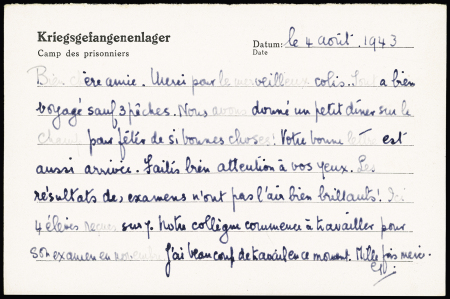 Kriegsgefangenenlager
Camp des prisonniers
Datum: le 4 août 1943
Date
Bien chère amie. Merci pour le merveilleux colis. Tout a bien
voyagé sauf 3 pêches. Nous avons donné un petit dîner sur le
champ pour fêter de si bonnes choses! Votre bonne lettre est
aussi arrivée. Faites bien attention à vos yeux. Les
résultats des examens n'ont pas l'air bien brillants! Ici
4 élèves reçus sur 7. Notre collègue commence à travailler pour
son examen en novembre. J'ai beaucoup de travail en ce moment. Mille fois merci.